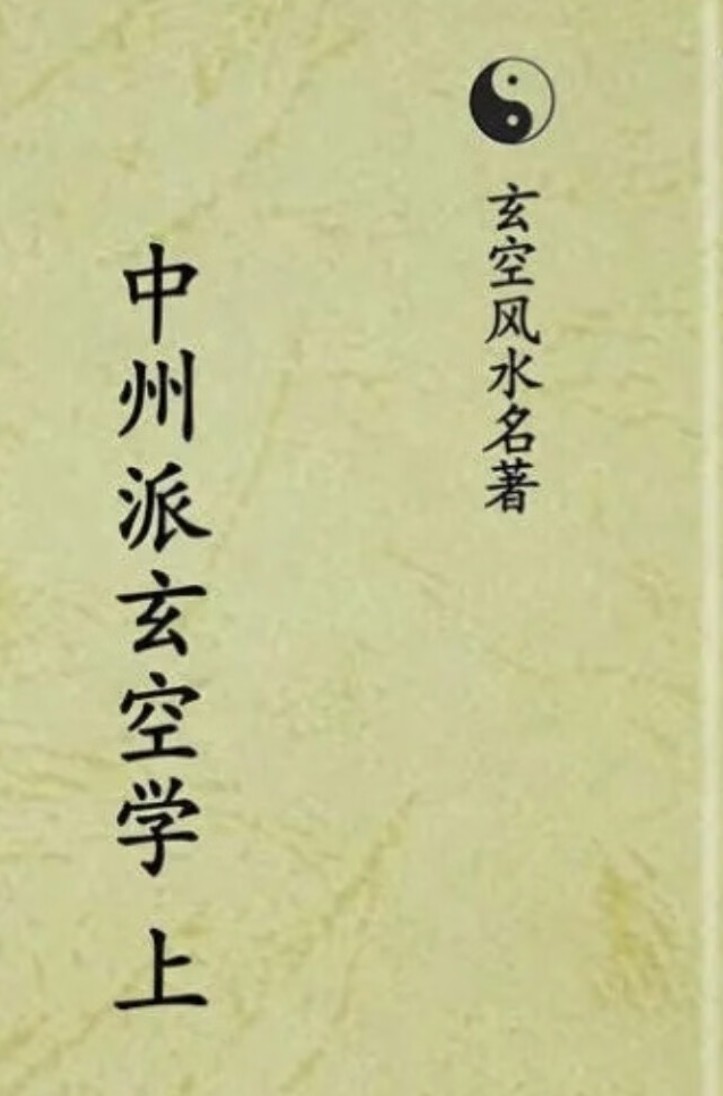 玄空风水名著
中州派玄空学 上